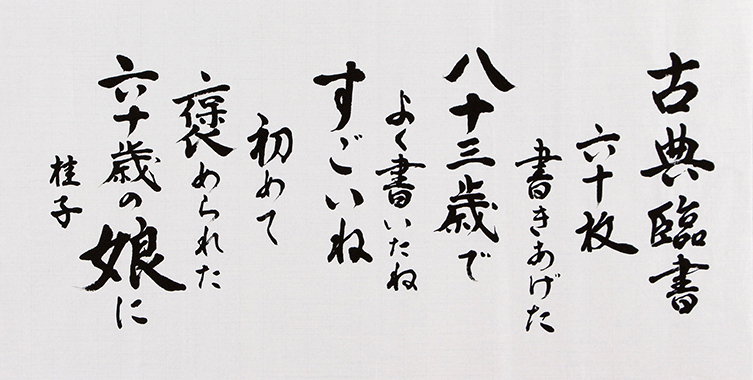 古典臨書
六十枚
書きあげた
八十三歳で
よく書いたね
すごいね
初めて
褒められた
六十歳の娘に
桂子